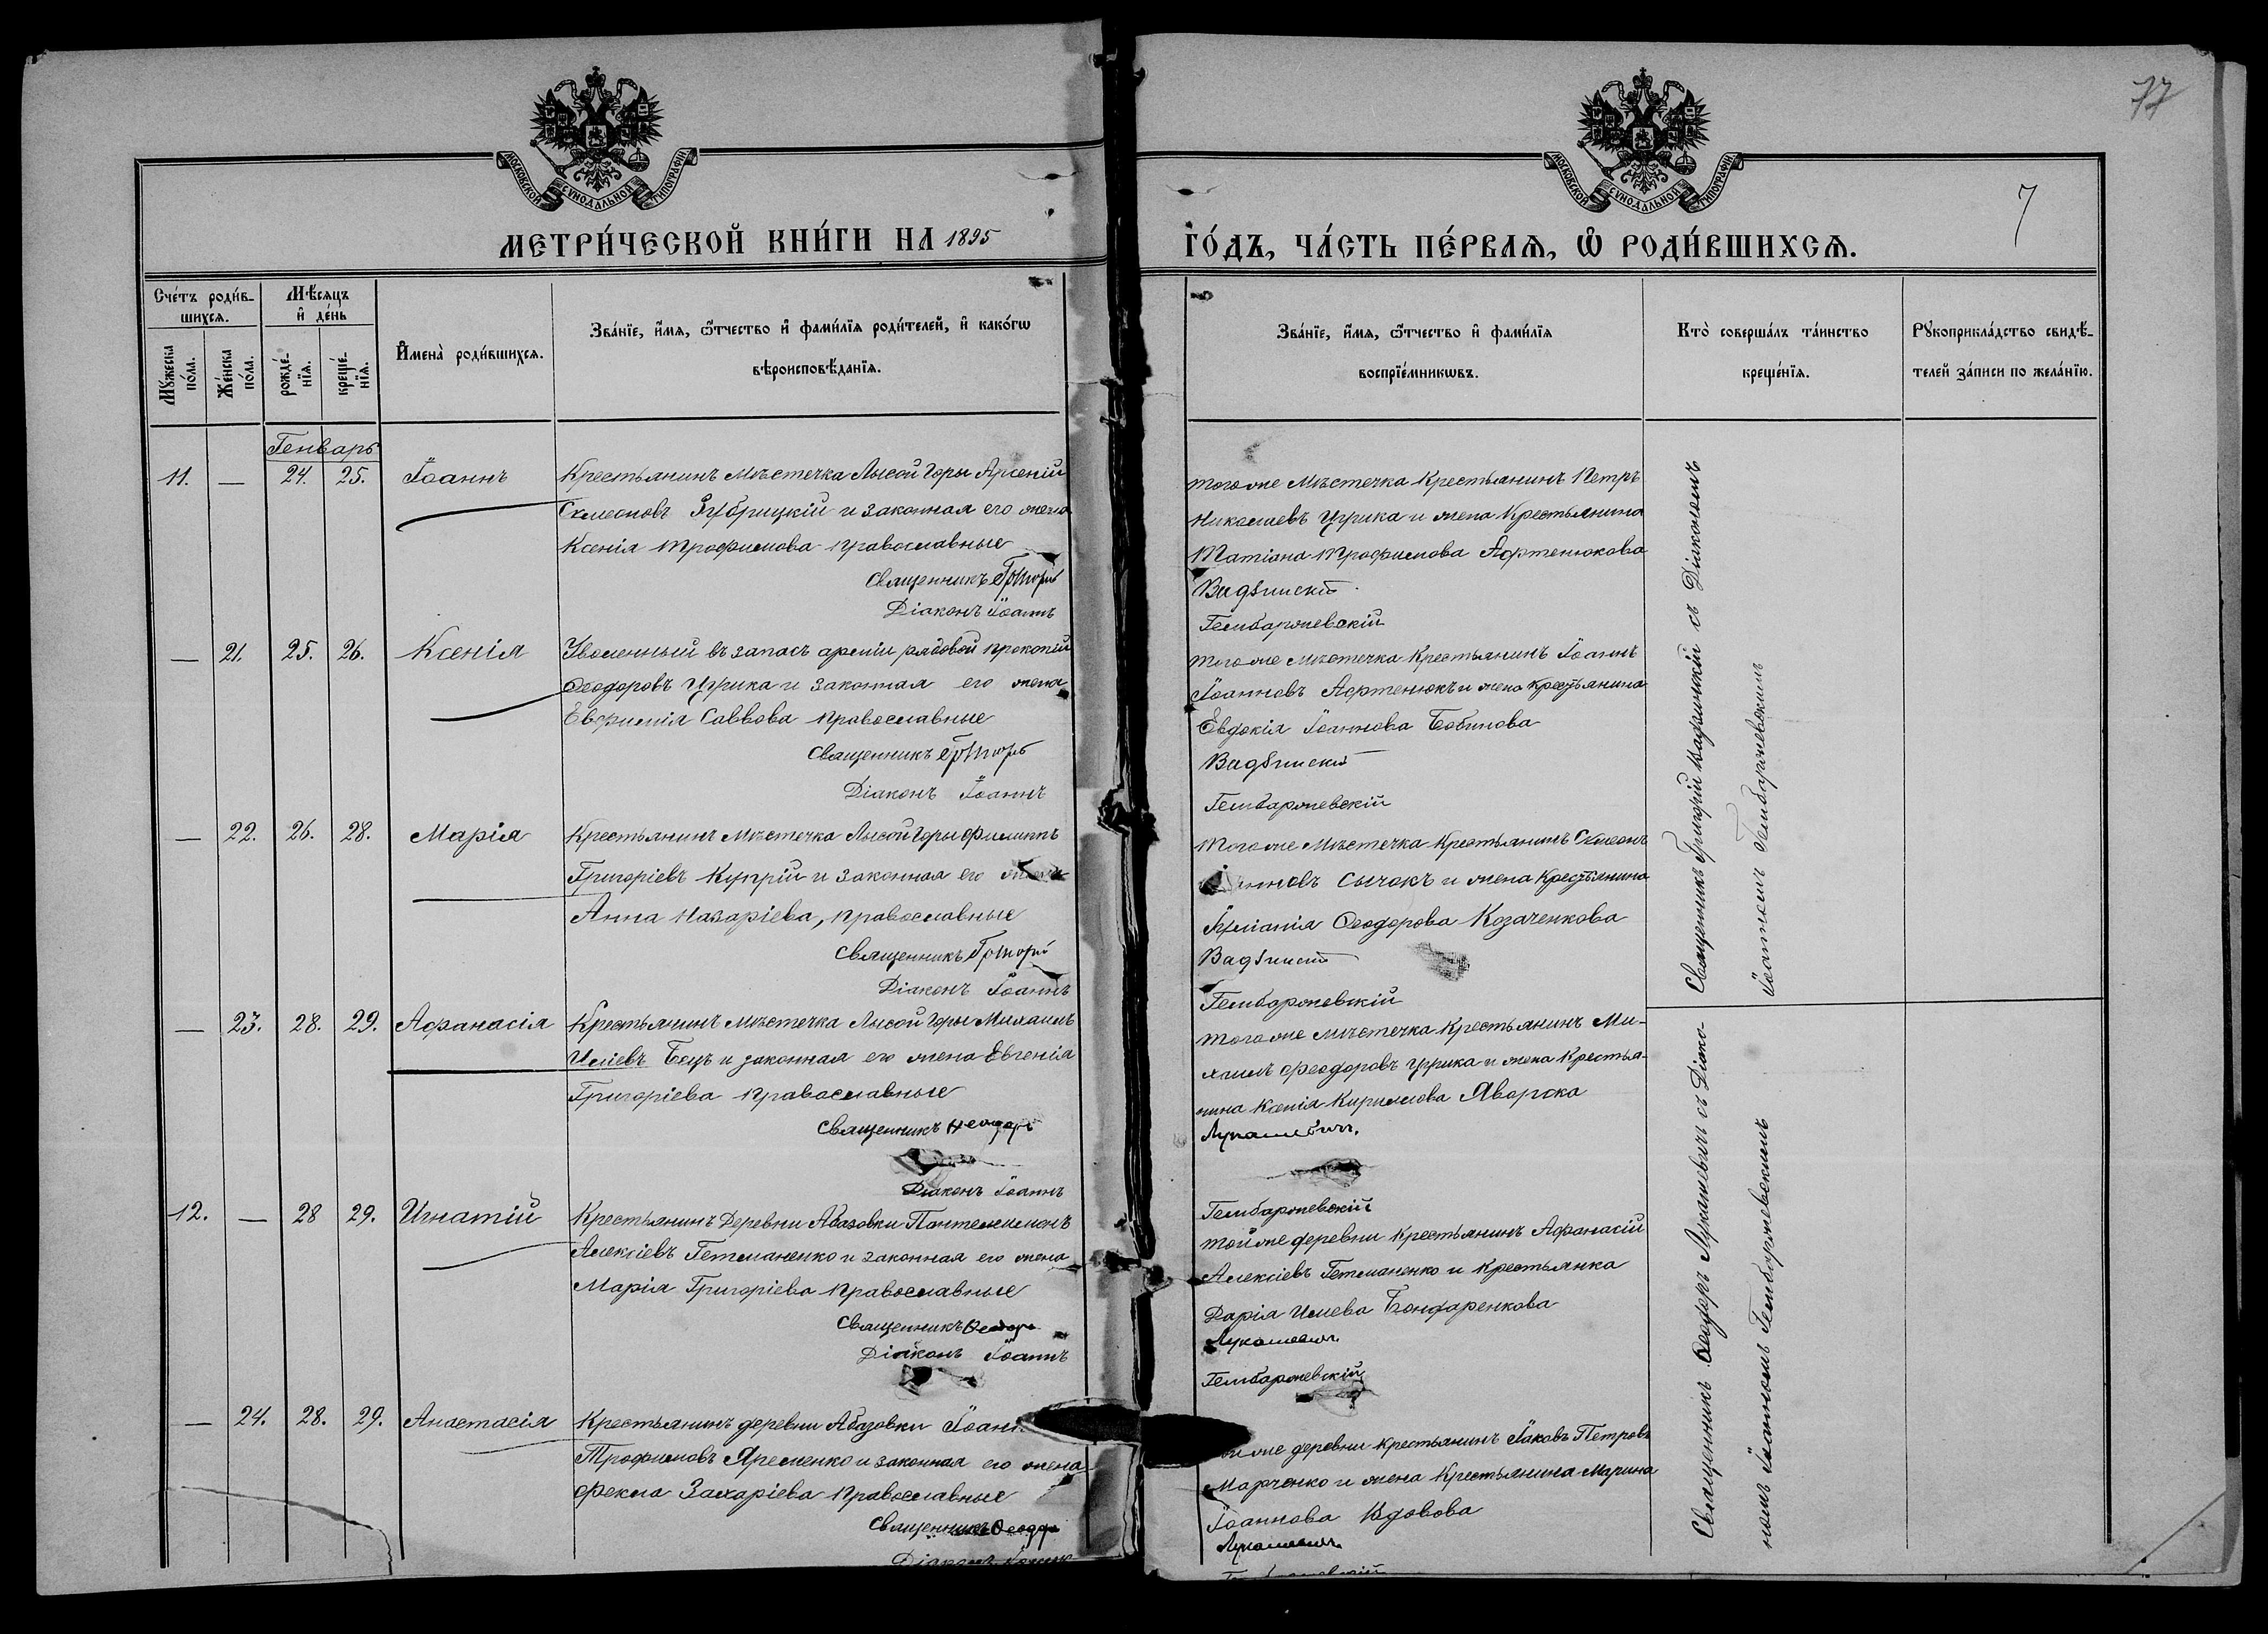 77
7
МОСКОВСКОЙ СѴНОДАЛЬНОЙ ТИПОГРАФІИ
МОСКОВСКОЙ СѴНОДАЛЬНОЙ ТИПОГРАФІИ
МЕТРИ́ЧЕСКОЙ КНИ́ГИ НА 1895
ГО́ДЪ, ЧА́СТЬ ПЕ́РВАѦ, Ѡ РОДИ́ВШИХСѦ.
Сче́тъ роди́в-
шихсѧ.
Мꙋжеска
по́ла.
Же́нска
по́ла.
Мѣ́сѧцъ
и҆ де́нь
рожде́-
нїѧ.
креще́-
нїѧ.
И҆мена̀ роди́вшихсѧ.
Зва́нїе, и҆́мѧ, ѻ҆́тчество и҆ фами́лїѧ роди́телей, и҆ како́гѡ
вѣроисповѣ́данїѧ.
Зва́нїе, и҆́мѧ, ѻ҆́тчество и҆ фами́лїѧ
воспрїе́мникѡвъ.
Кто̀ соверша́лъ та́инство
креще́нїѧ.
Рꙋкоприкла́дство свидѣ́-
телей за́писи по жела́нїю.
Генварь
11. — 24. 25. Іоаннъ
Крестьянинъ Мѣстечка Лысой Горы Арсеній
Сѵмеоновъ Зубрицкій и законная его жена
Ксенія Трофимова православные
Священникъ Григорій
Діаконъ Іоаннъ
тогоже Мѣстечка Крестьянинъ Петръ
Николаевъ Цурика и жена Крестьянина
Татіана Трофимова Афтенюкова
Гембаржевскій
— 21. 25. 26. Ксенія
Уволенный въ запасъ арміи рядовой Прокопій
Ѳеодоровъ Цурика и законная его жена
Евфимія Саввова православные
Священникъ Григорій
Діаконъ Іоаннъ
тогоже мѣстечка Крестьянинъ Іоаннъ
Іоанновъ Афтенюкъ и жена крестьянина
Евдокія Іоаннова Бабинова
Гембаржевскій
— 22. 26. 28. Марія
Крестьянинъ Мѣстечка Лысой Горы Филиппъ
Григоріевъ Купрій и законная его жена
Анна Назаріева, православные
Священникъ Григорій
Діаконъ Іоаннъ
тогоже Мѣстечка Крестьянинъ Сѵмеонъ
Сычокъ и жена Крестьянина
Іуліанія Ѳеодорова Козаченкова
Гембаржевскій
— 23. 28. 29. Афанасія
Крестьянинъ Мѣстечка Лысой Горы Михаилъ
Иліевъ Бецъ и законная его жена Евгенія
Григоріева православные
Священникъ Ѳеодоръ
Діаконъ Іоаннъ
тогоже мѣстечка Крестьянинъ Ми-
хаилъ Феодоровъ Цурика и жена Крестья-
нина Ксенія Кириллова Яворска
Лукашевичъ.
Гембаржевскій
12. — 28 29. Игнатій
Крестьянинъ Деревни Абазовки Пантелеимонъ
Алексіевъ Гетманенко и законная его жена
Марія Григоріева православные
Священникъ Ѳеодоръ
Діаконъ Іоаннъ
тойже деревни крестьянинъ Афанасій
Алексіевъ Гетманенко и Крестьянка
Дарія Иліева Бондаренкова
Лукашевичъ
Гембаржевскій
— 24. 28. 29. Анастасія
Крестьянинъ деревни Абазовки Іоаннъ
Трофимовъ Яременко и законная его жена
Фекла Захаріева православные
Священникъ Ѳеодоръ
Діаконъ Іоаннъ
деревни крестьянинъ Іаковъ Петровъ
Марченко и жена Крестьянина Марина
Іоаннова Вдовова
Лукашевичъ
Гембаржевскій
Священникъ Григорій съ Діакономъ
Іоанномъ Гембаржевскимъ
Священникъ Ѳеодоръ Лукашевичъ съ Діако-
номъ Іоанномъ Гембаржевскимъ